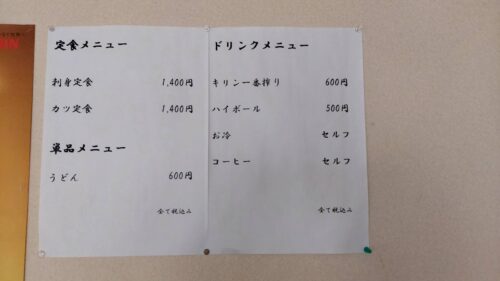 定食メニュー
刺身定食 1,400円
カツ定食 1,400円
単品メニュー
うどん 600円
全て税込み
ドリンクメニュー
キリン一番搾り 600円
ハイボール 500円
お冷 セルフ
コーヒー セルフ
全て税込み